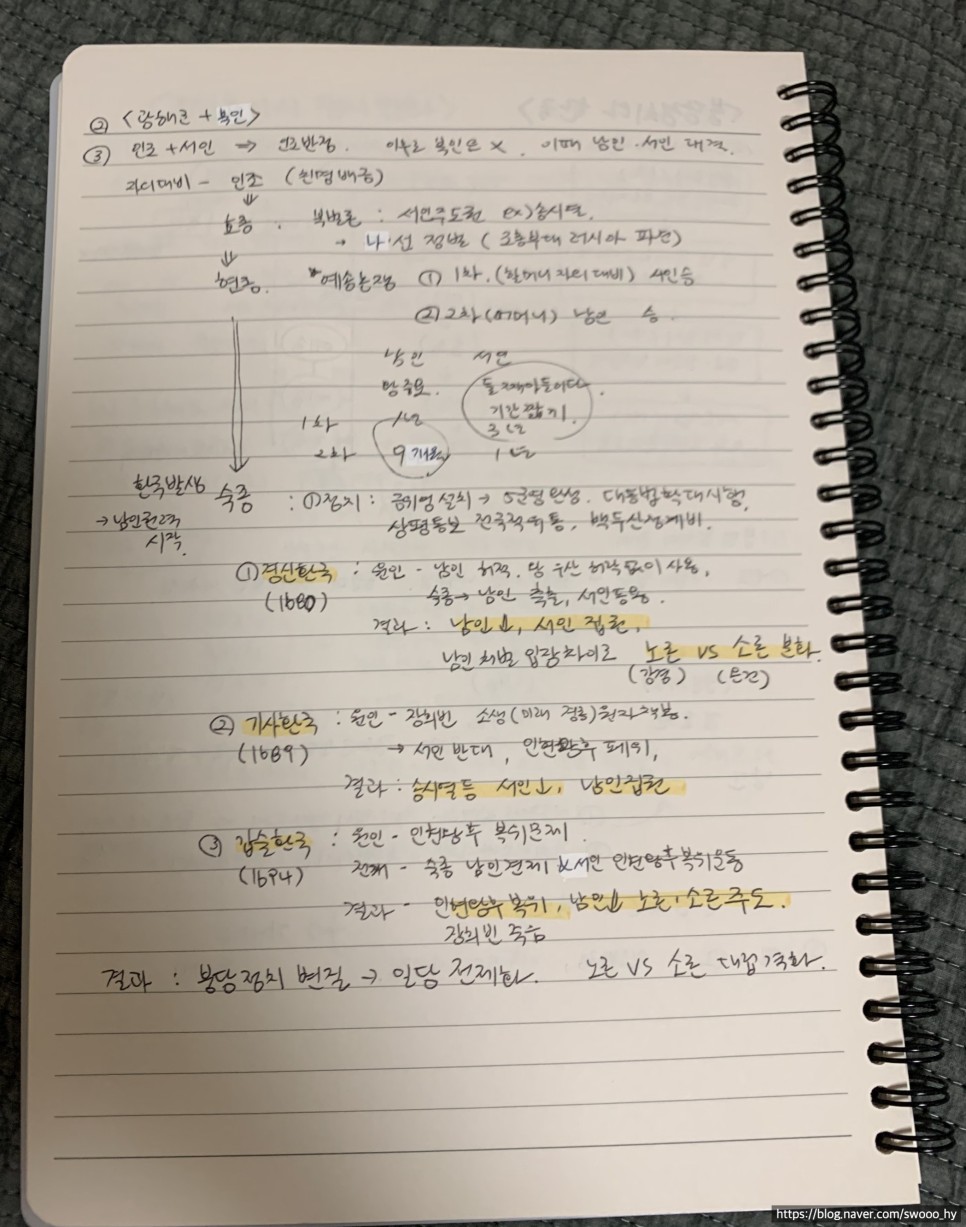 ② <광해군 + 북인>
③ 인조 + 서인 ⇒ 인조반정. 이후로 북인은 x. 이때 남인·서인 대결.
자의대비 - 인조 (친명배금)
⇓
효종. 북벌론 : 서인주도권 ex) 송시열.
→ 나·선 정벌 ( 조총부대 러시아 파견)
⇓
현종. 예송논쟁 ① 1차. (할머니 자의대비) 서인승
② 2차 (어머니) 남인 승.
남인 서인
왕족요. 둘째아들이다.
기간짧기.
1차 1년 3년
2차 9개월 1년
환국발생 숙종 : ①정치 : 금위영설치 → 5군영완성. 대동법확대시행,
→ 남인권력 상평통보 전국적유통, 백두산정계비.
시작.
① 경신환국 : 원인 - 남인 허적. 왕 우산 허락없이 사용,
(1680) 숙종 → 남인 축출, 서인등용.
결과 : 남인⇓, 서인 집권,
남인처벌 입장차이로 노론 vs 소론 분화.
(강경) (온건)
② 기사환국 : 원인 - 장희빈 소생(미래 경종) 원자책봉.
(1689) → 서인 반대, 인현왕후 폐위,
결과 : 송시열등 서인↓, 남인집권
③ 갑술환국 : 원인 - 인현왕후 복위문제.
(1694) 전개 - 숙종 남인견제 & 서인 인현왕후복위운동
결과 - 인현왕후복위, 남인⇓ 노론·소론주도.
장희빈 죽음
결과 : 붕당정치 변질 → 일당 전제화. 노론 VS 소론 대립격화.
https://blog.naver.com/swooo_hy